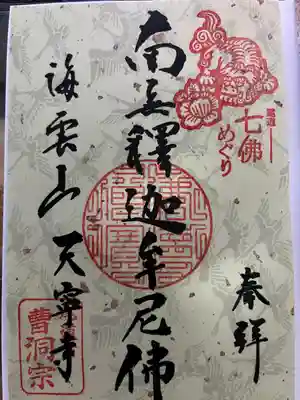 尾道
七佛
めぐり
奉拜
南無釋迦牟尼佛
海雲山天寧寺
曹洞宗